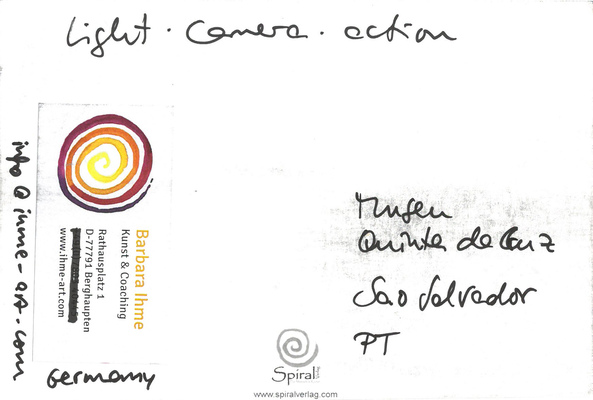 Light · Camera · action
info@ihme-art.com
Barbara Ihme
Kunst & Coaching
Rathausplatz 1
D-77791 Berghaupten
www.ihme-art.com
Germany
Museu
Quinta da Cruz
Sao Salvador
PT
Spiral
www.spiralverlag.com